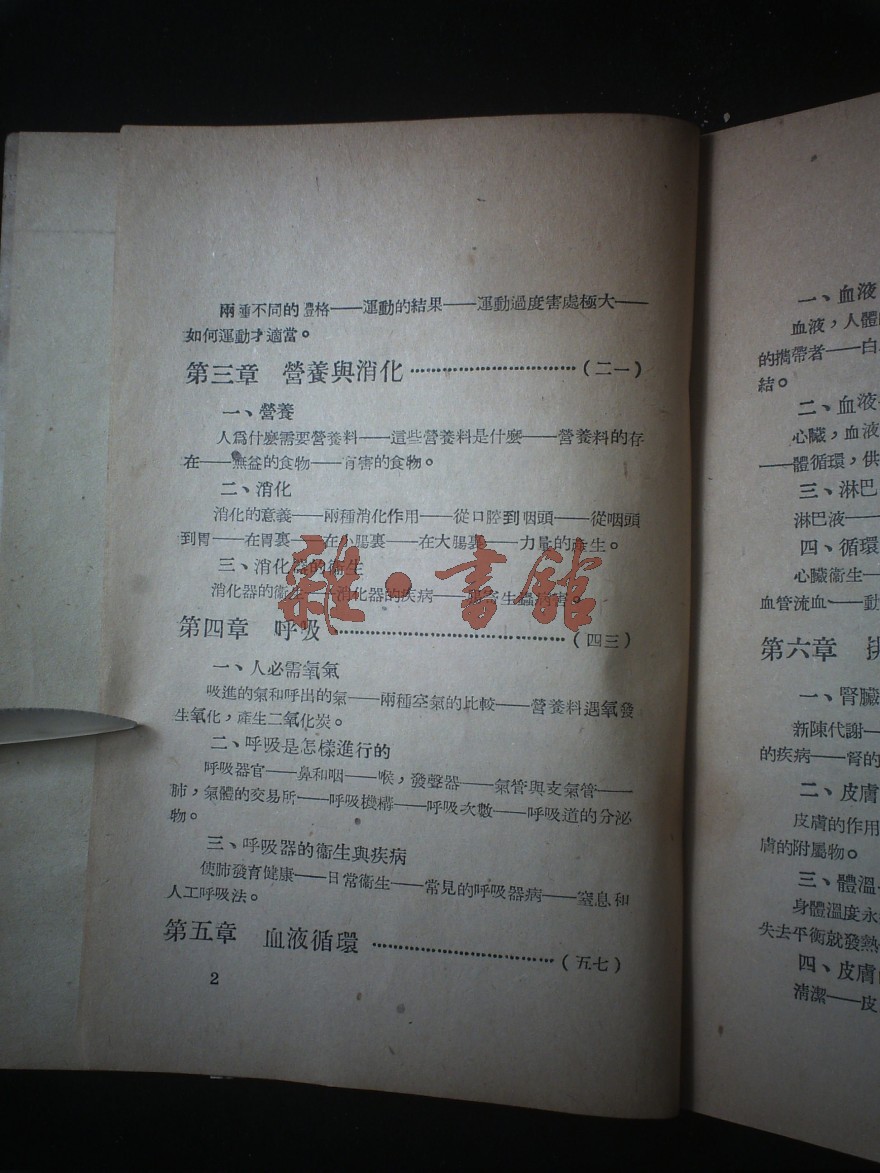 兩種不同的體格——運動的結果——運動過度害處極大——
如何運動才適當。
第三章 營養與消化 ………………………(二一)
一、營養
人爲什麼需要營養料——這些營養料是什麼——營養料的存
在——無益的食物——有害的食物。
二、消化
消化的意義——兩種消化作用——從口腔到咽頭——從咽頭
到胃——在胃裏——在小腸裏——在大腸裏——力量的產生。
三、消化器的衞生
消化器的衞生——消化器的疾病——腸寄生蟲病害。
第四章 呼吸 ………………………(四三)
一、人必需氧氣
吸進的氣和呼出的氣——兩種空氣的比較——營養料遇氧發
生氧化，產生二氧化炭。
二、呼吸是怎樣進行的
呼吸器官——鼻和咽——喉，發聲器——氣管與支氣管——
肺，氣體的交易所——呼吸機構——呼吸次數——呼吸道的分泌
物。
三、呼吸器的衞生與疾病
使肺發育健康——日常衞生——常見的呼吸器病——窒息和
人工呼吸法。
第五章 血液循環 ………………………(五七)
2
雜·書館
一、血液
血液，人體
的攜帶者——白
結。
二、血液
心臟，血液
——體循環，供
三、淋巴
淋巴液——
四、循環
心臟衞生——
血管流血、——動
第六章
一、腎臟
新陳代謝——
的疾病——腎的
二、皮膚
皮膚的作用
膚的附屬物。
三、體溫
身體溫度永
失去平衡就發熱
四、皮膚
清潔——皮